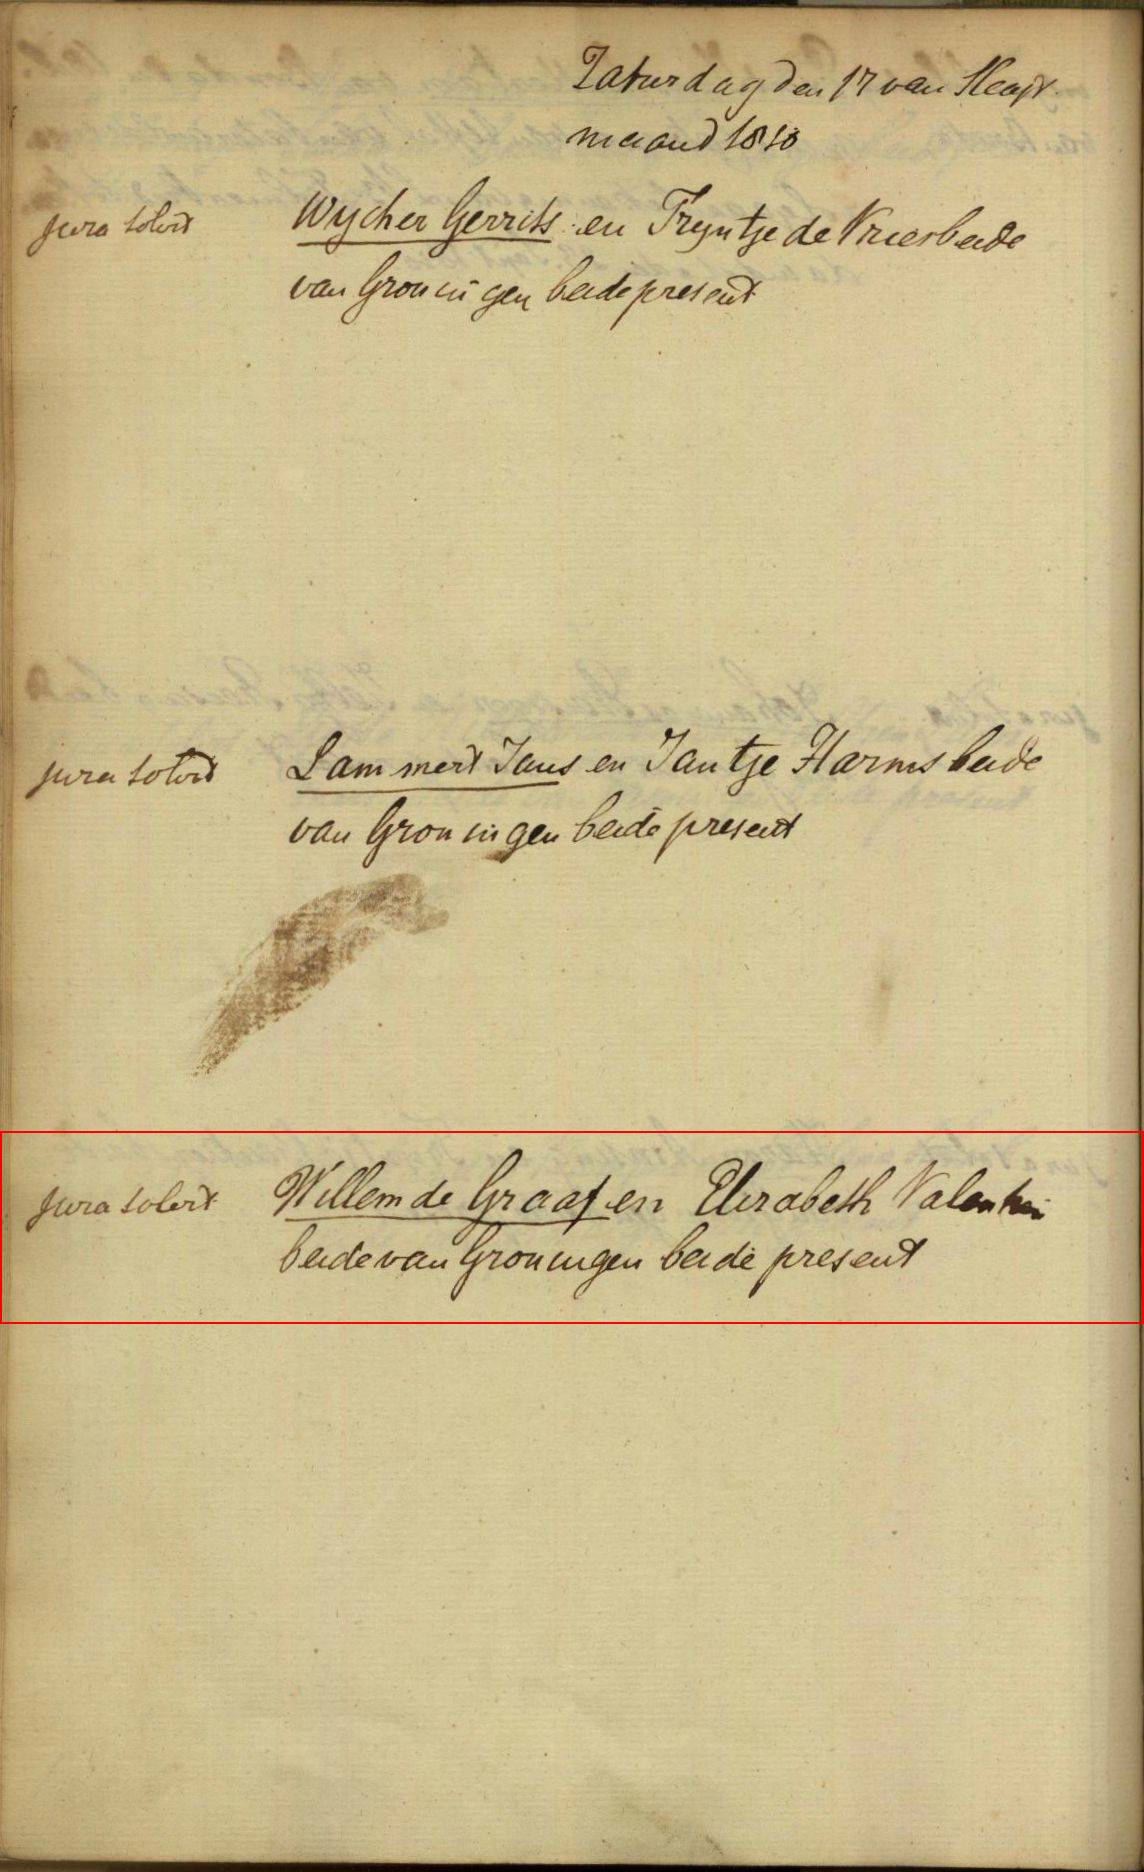 Zaturdag den 17 van Slagt
maand 1810
jura solvit Wycher Gerrits en Tryntje de Vries beide
van Groningen beide present
jura solvit Lammert Jans en Jantje Harms beide
van Groningen beide present
jura solvit Willem de Graaf en Elizabeth Valentein
beide van Groningen beide present